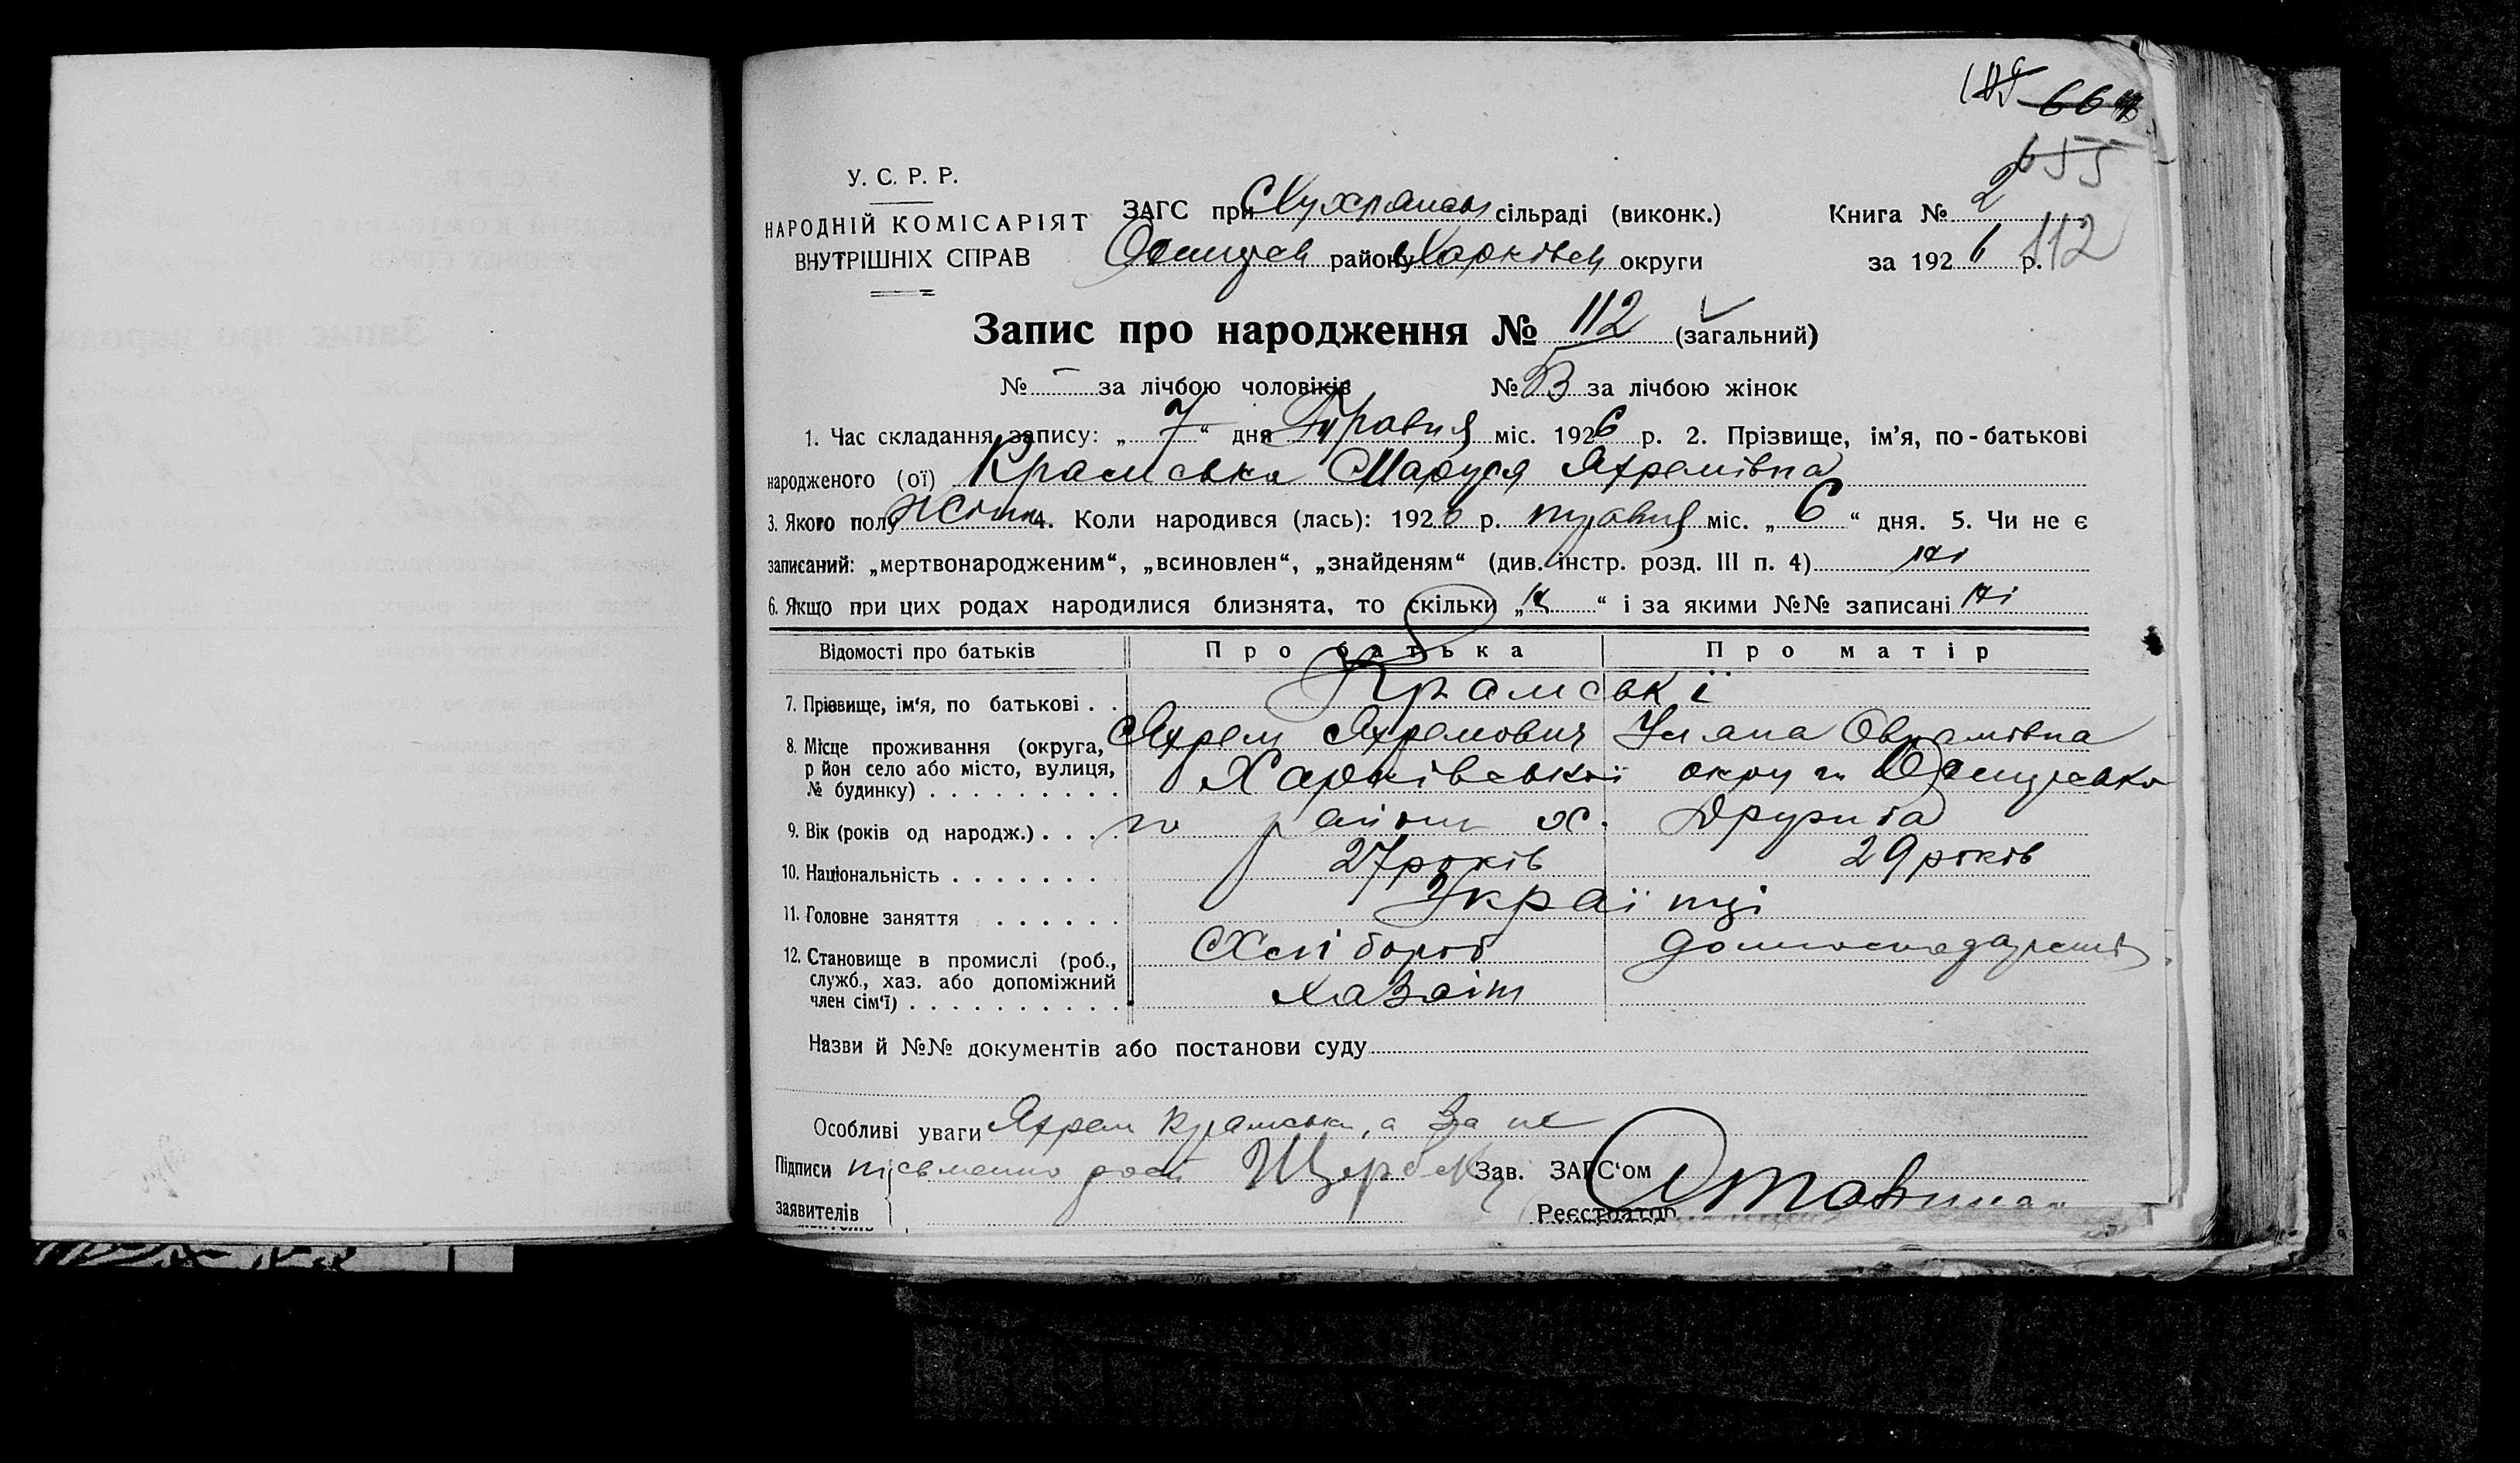 66
655
У. С. Р. Р.
НАРОДНІЙ КОМІСАРІЯТ
ВНУТРІШНІХ СПРАВ
ЗАГС при сільраді (виконк.)
району Харківськ округи
Книга № 2
за 1926 р. 112
Запис про народження № 112 (загальний)
№ — за лічбою чоловіків № за лічбою жінок
1. Час складання запису: „ 7 “ дня Травня міс. 1926 р. 2. Прізвище, ім’я, по-батькові
народженого (ої) Крамська Маруся Яхремівна
3. Якого полу жіноч 4. Коли народився (лась): 1926 р. травня міс. „ 6 “ дня. 5. Чи не є
записаний: „мертвонародженим“, „всиновлен“, „знайденям“ (див. інстр. розд. III п. 4) ні
6. Якщо при цих родах народилися близнята, то скільки „ “ і за якими №№ записані ні
Відомості про батьків Про батька Про матір
7. Прізвище, ім‘я, по батькові . . Крамські
Яхрем Яхремович Уляна Оврамівна
8. Місце проживання (округа,
р йон село або місто, вулиця,
№ будинку) . . . . . . . . . Харківської округи
го району х.
9. Вік (років од народж.) . . . . 27 років 29 років
10. Національність . . . . . . . Українці
11. Головне заняття . . . . . . Хлібороб
12. Становище в промислі (роб.,
служб., хаз. або допоміжний
член сім‘ї) . . . . . . . . . . Хазяїн
Назви й №№ документів або постанови суду
Особливі уваги Яхрем Крамськи, а за не
Підписи письменно
заявителів
Зав. ЗАГС‘ом
Реєстратор